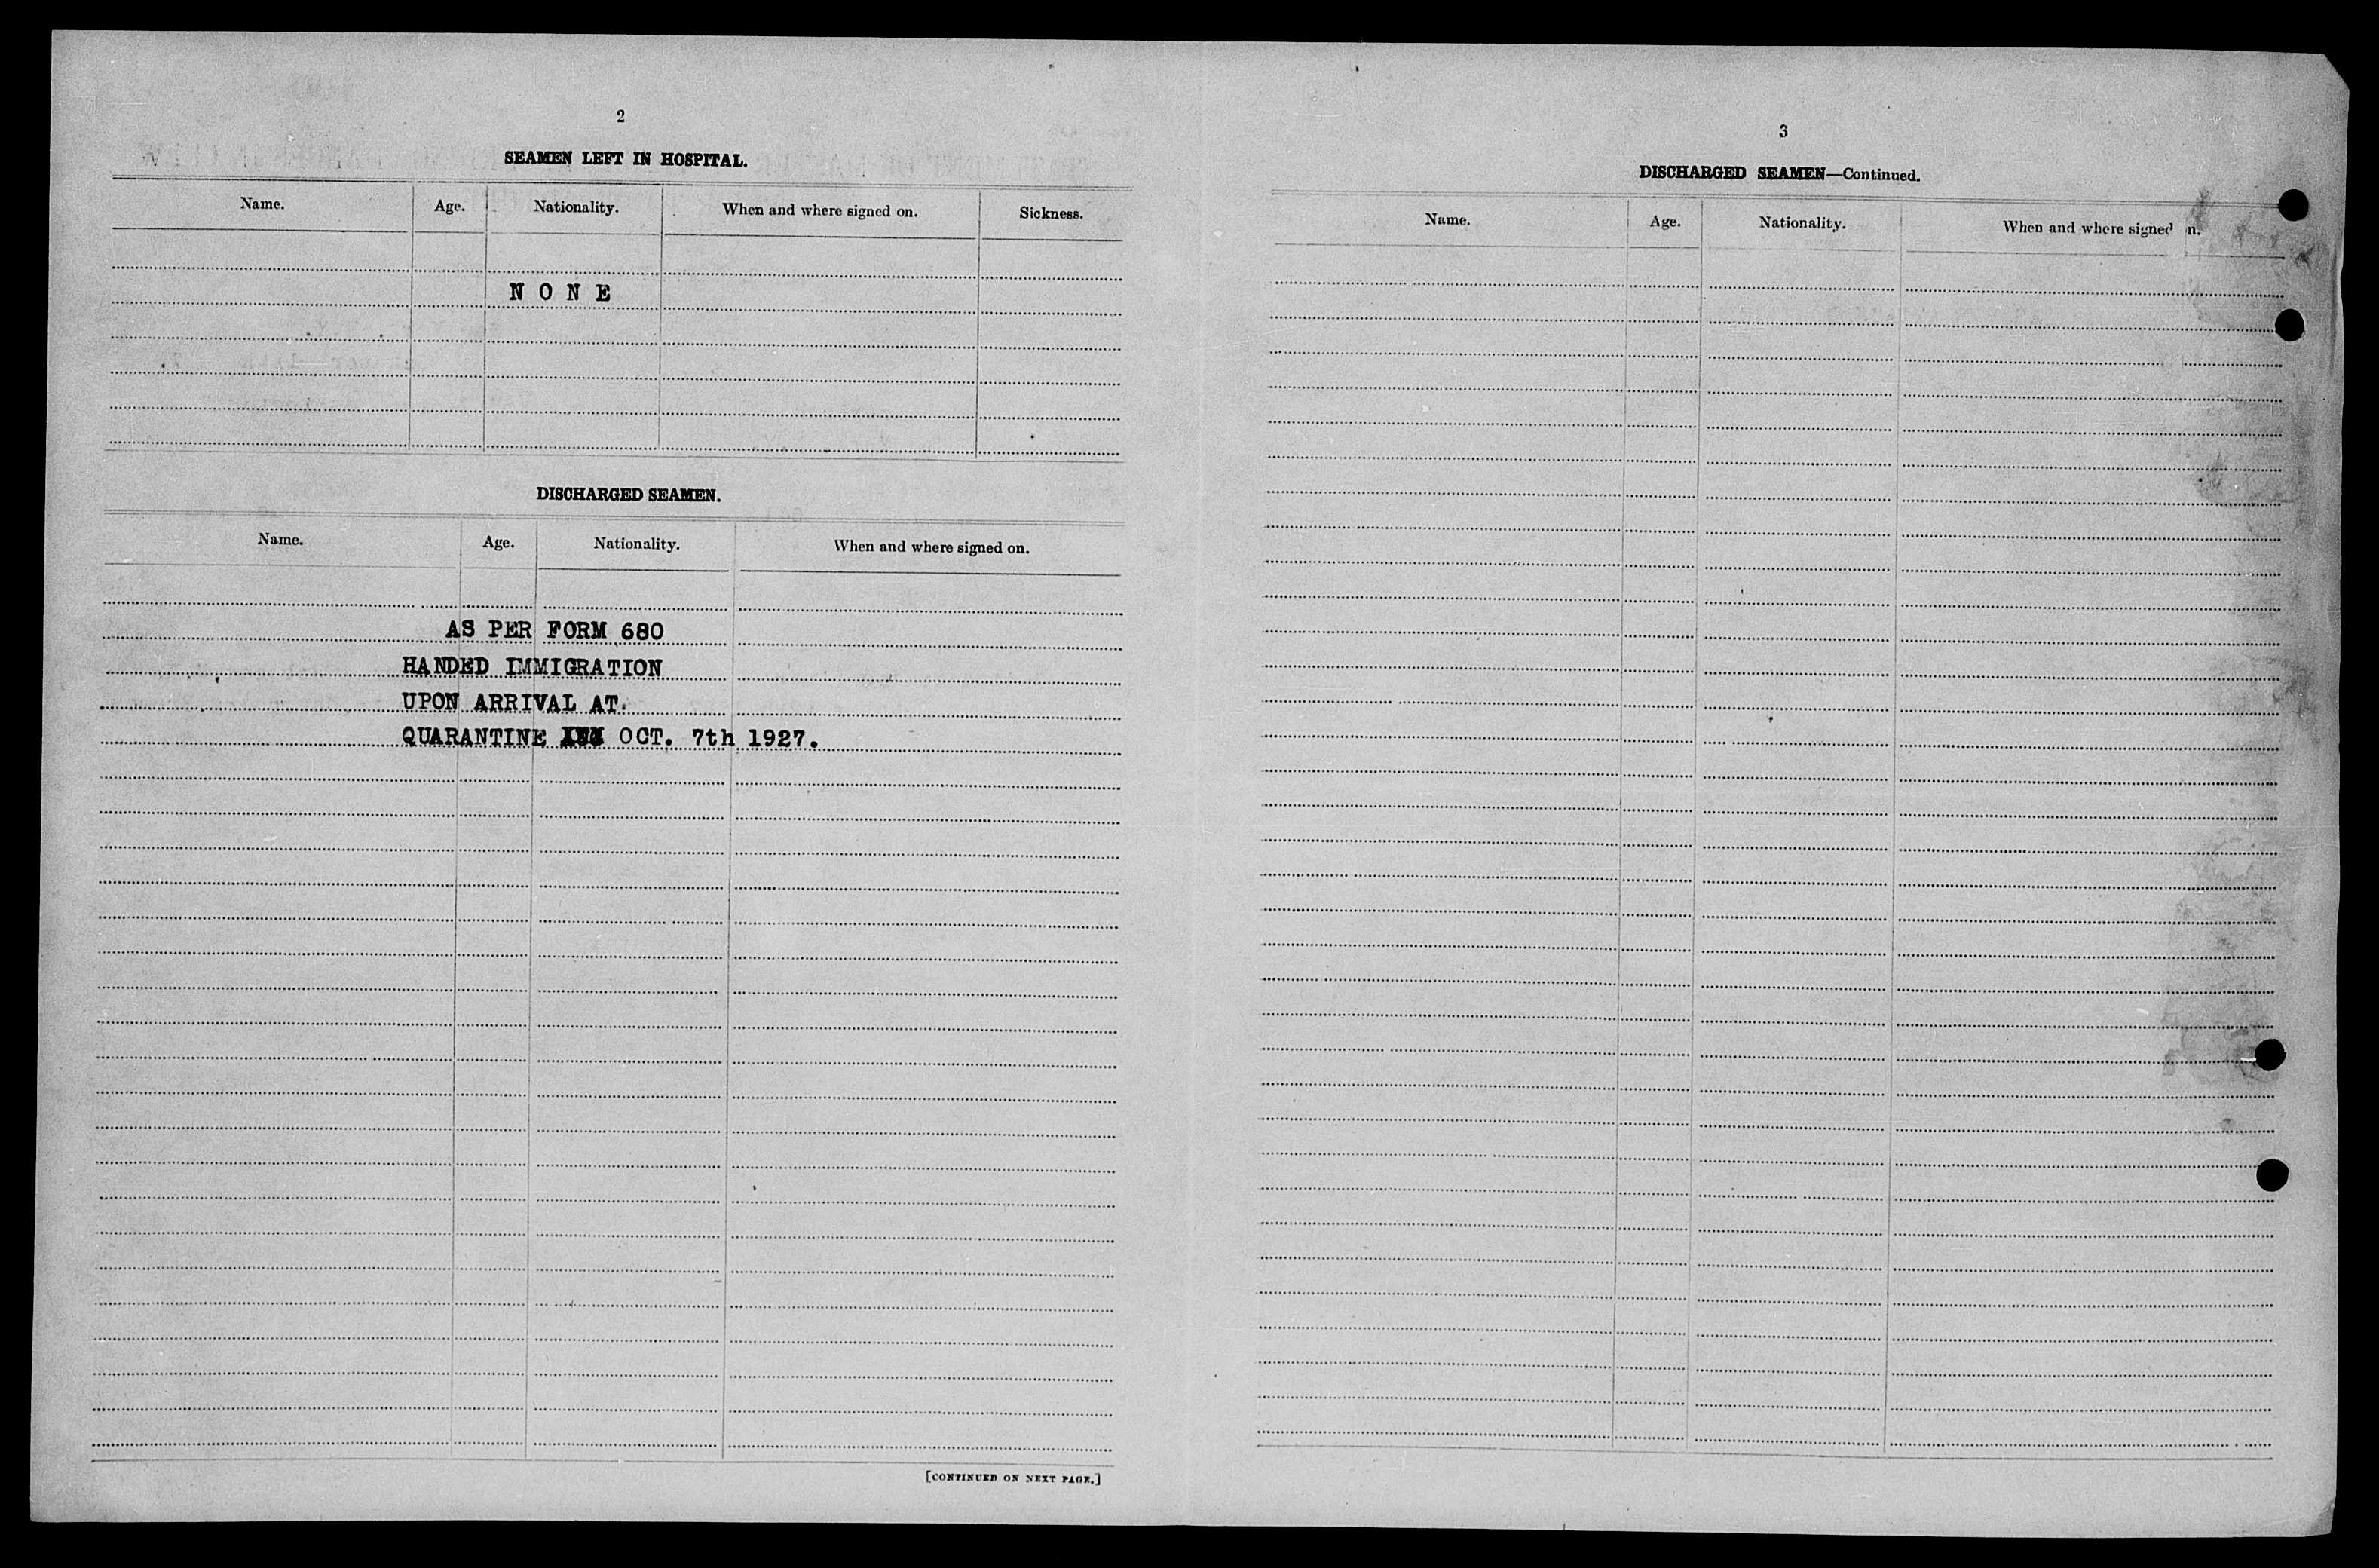 2
SEAMEN LEFT IN HOSPITAL.
Name. Age. Nationality. When and where signed on. Sickness.
N O N E
DISCHARGED SEAMEN.
Name. Age. Nationality. When and where signed on.
AS PER FORM 680
HANDED IMMIGRATION
UPON ARRIVAL AT.
QUARANTINE OCT. 7th 1927.
[CONTINUED ON NEXT PAGE.]
3
DISCHARGED SEAMEN—Continued.
Name. Age. Nationality. When and where signed n.